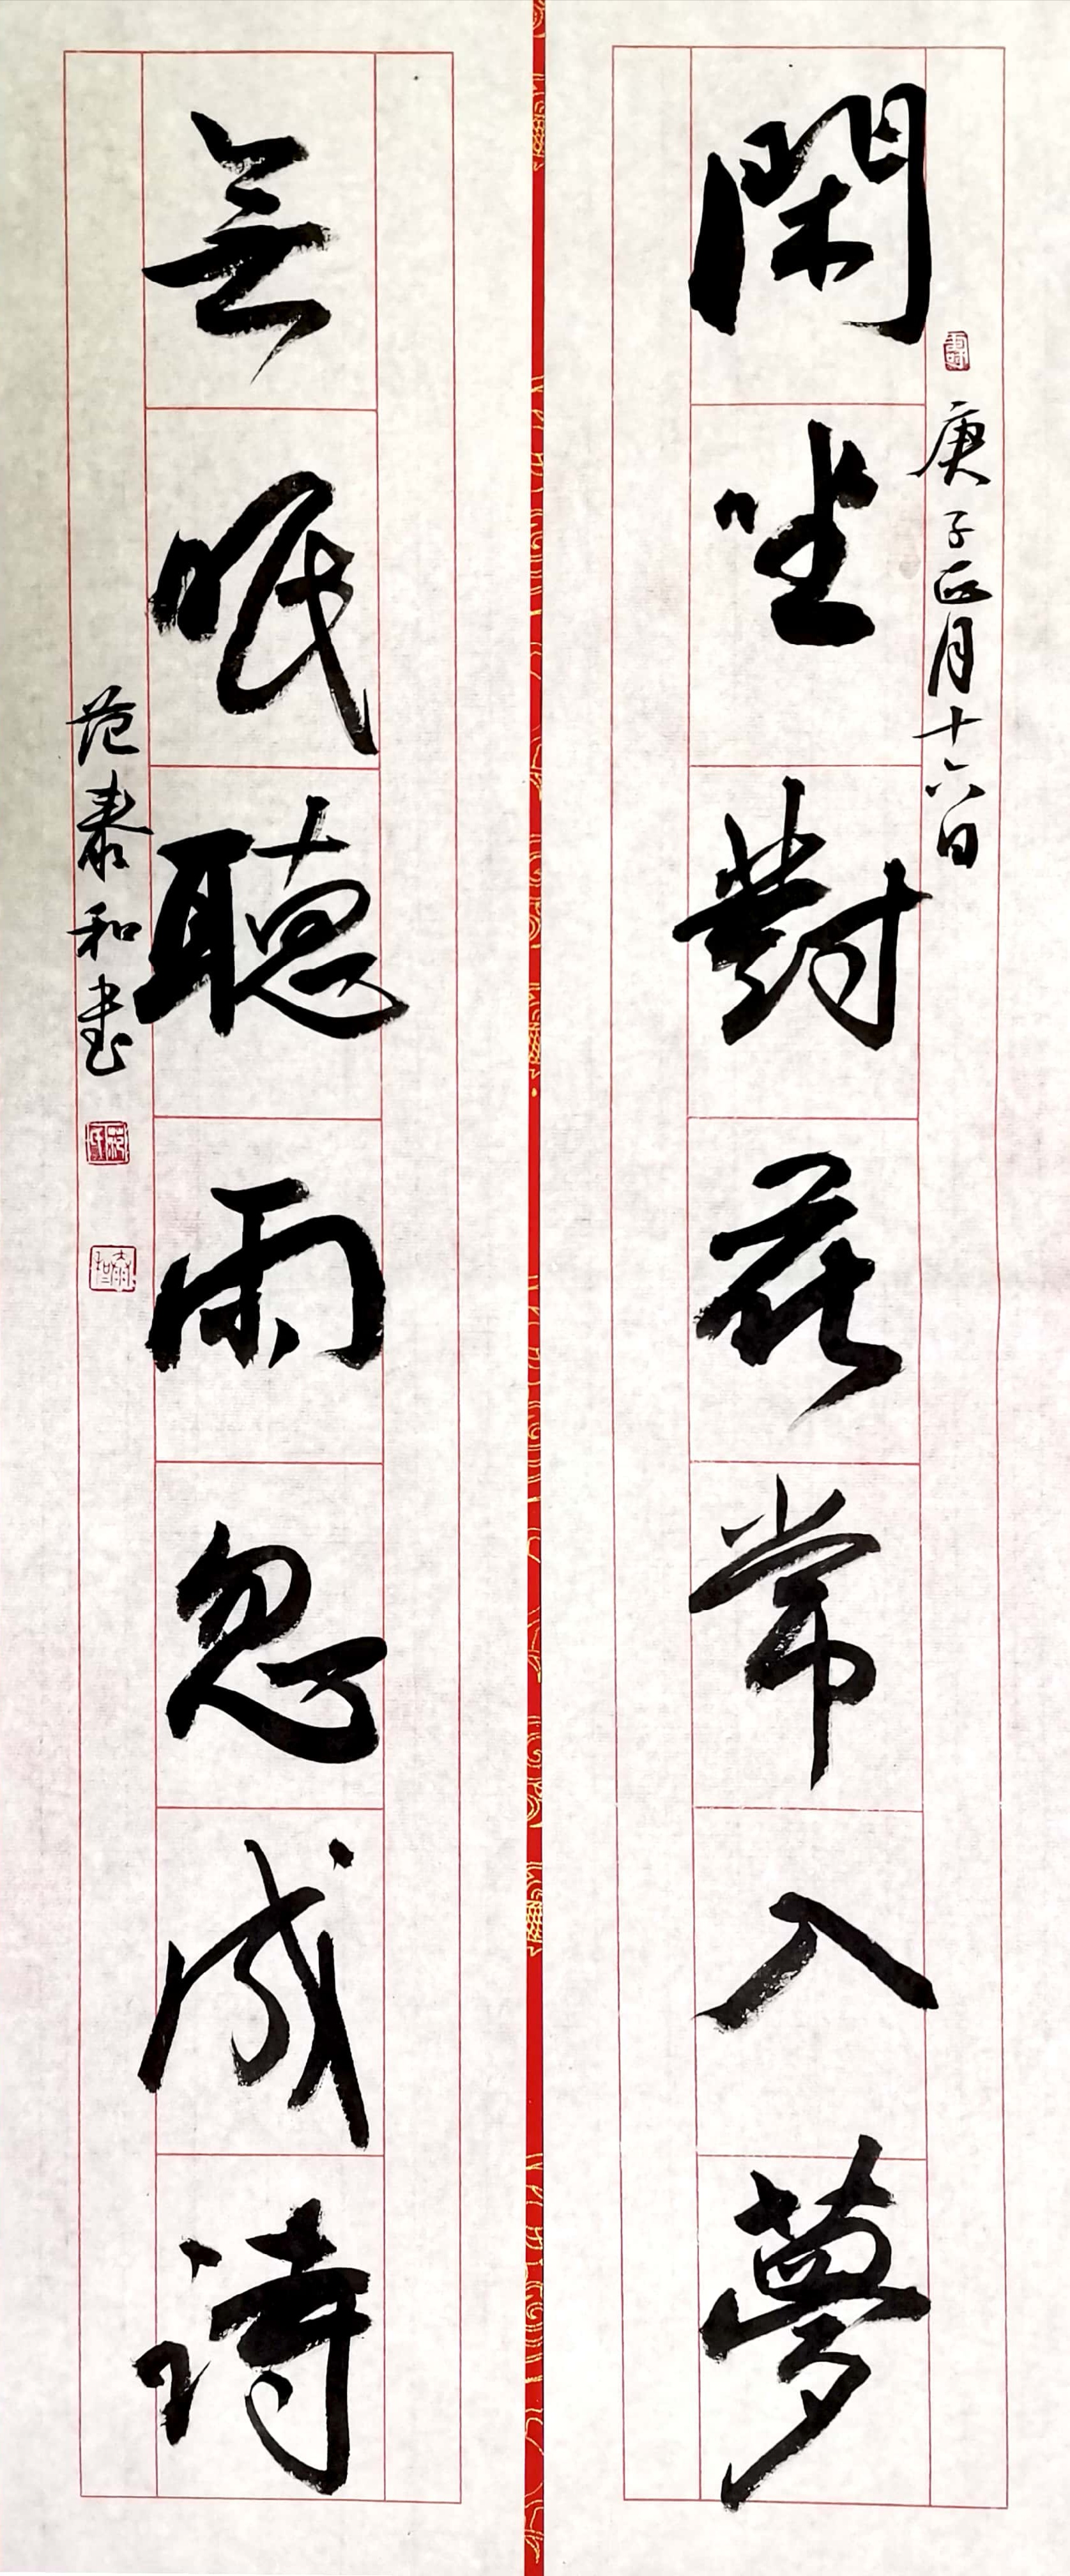 閑坐對花常入夢
庚子正月十六日
無眠聽雨忽成詩
范泰和書